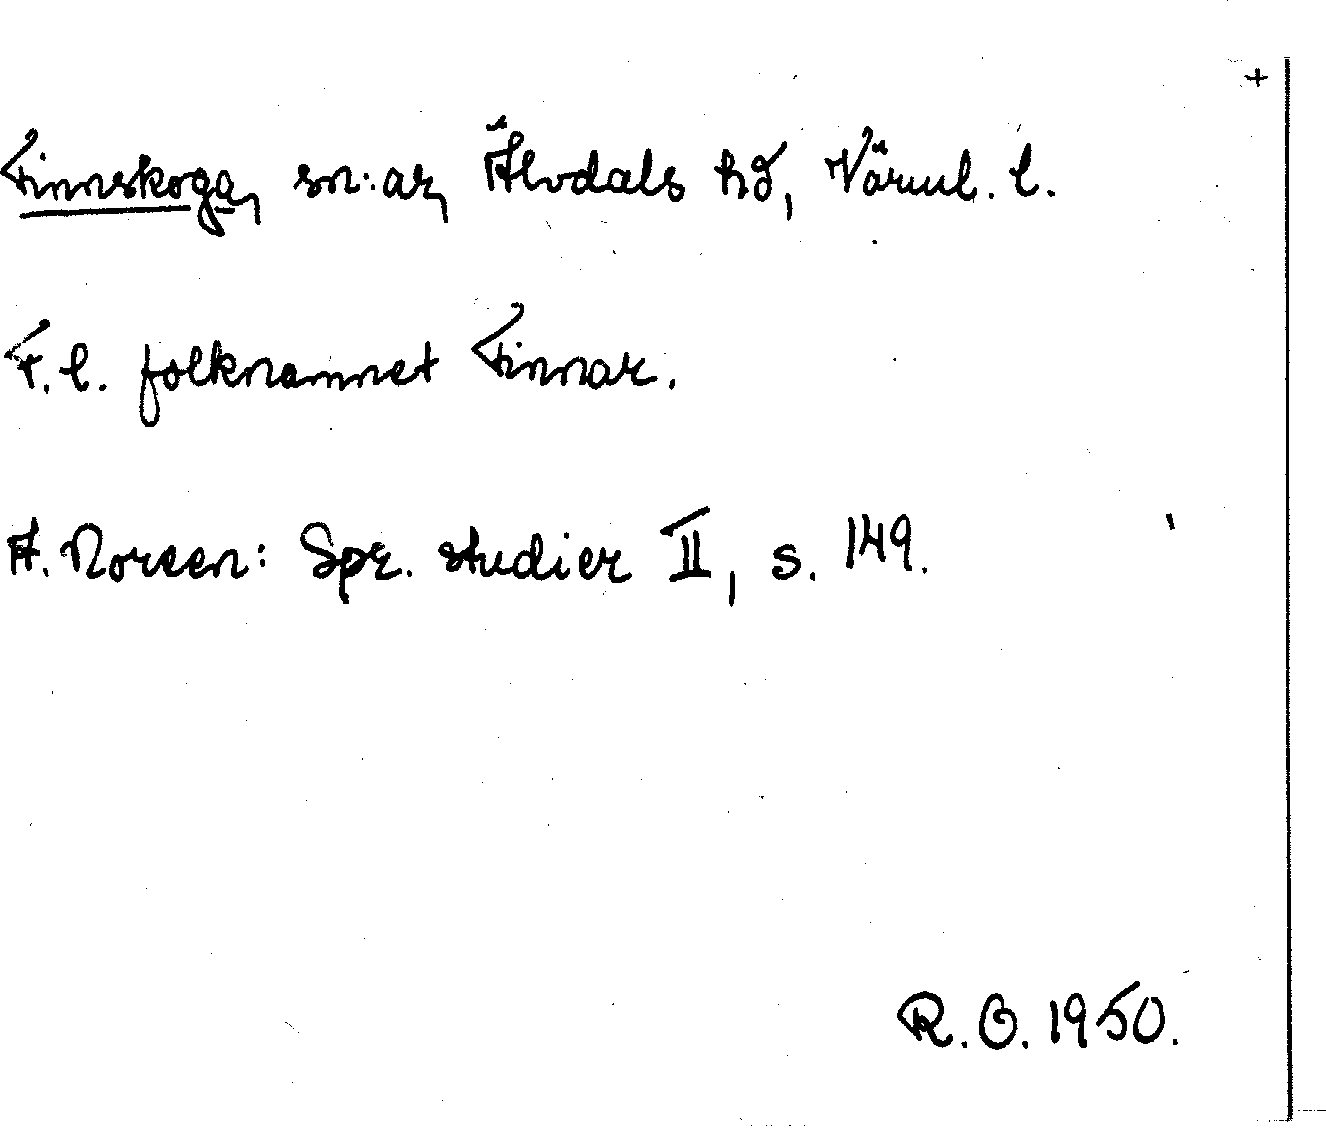 +
Finnskoga, sn:ar, Älvdals hd, Värml. l.
F. l. folknamnet Finnar.
A. Noreen: Spr. studier II, s. 149.
R. O. 1950.